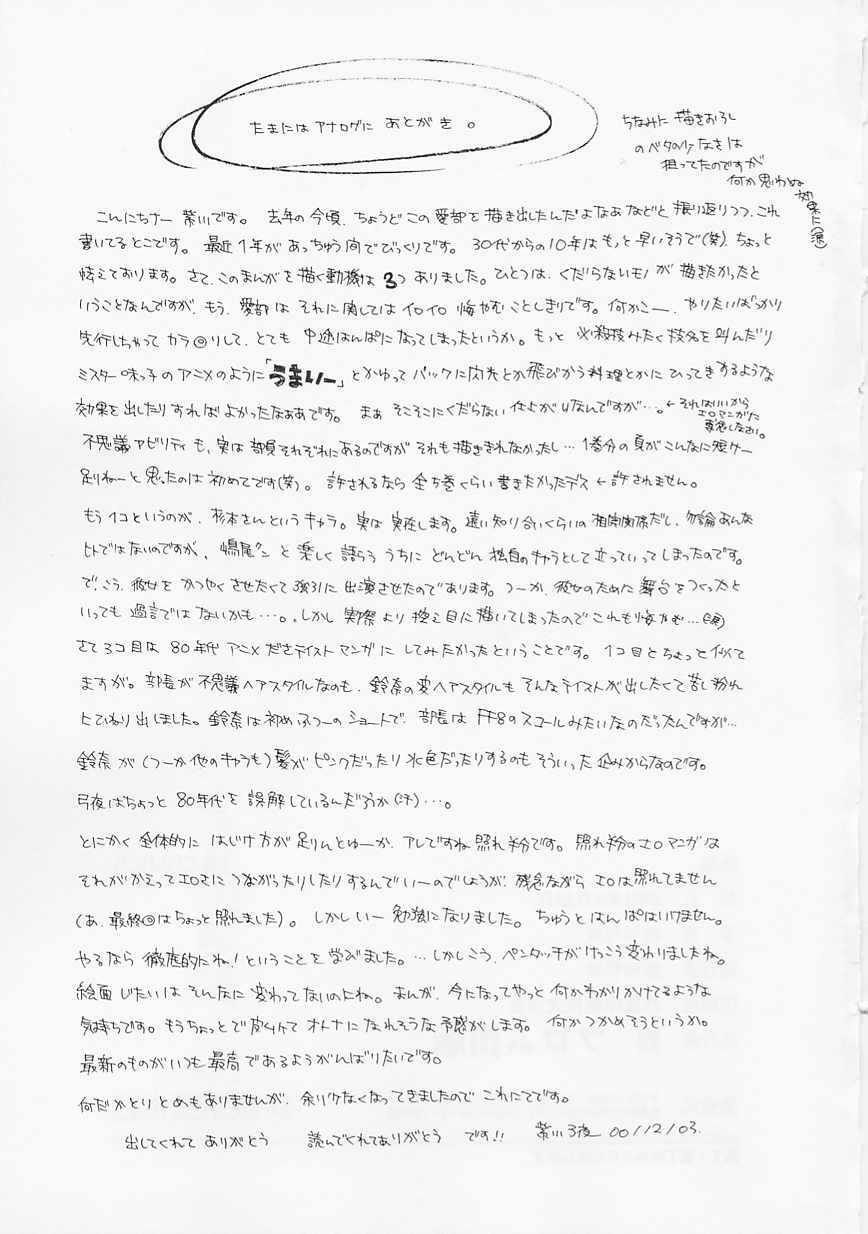 たまにはアナログに あとがき。
ちなみに 描きおろし
のベタのケなさは
狙ってたのですが
何か思わぬ
効果に(涙)
こんにちナー 紫川です。 去年の今頃、ちょうどこの愛部を描き出したんだよなあなどと振り返りつつ、これ
書いてるとこです。 最近1年があっちゅう間でびっくりです。 30代からの10年はもっと早いそうで(笑)、ちょっと
怯えております。さて、このまんがを描く動機は3つありました。ひとつは、くだらないモノが描きたかったと
いうことなんですが、もう、愛部はそれに関してはイロイロ悔やむことしきりです。何かこー、やりたいばっかり
先行しちゃってカラ回りして、とても中途はんぱになってしまったというか。もっと必殺技みたく技名を叫んだり
ミスター味っ子のアニメのように「うまいー」とかゆってバックに閃光とか飛びかう料理とかにひってきするような
効果を出したりすればよかったなぁあです。 まぁそこそこにくだらない仕上がりなんですが…。←それはいいから
エロマンガに
専念しなさい。
不思議アビリティも、実は部員それぞれにあるのですがそれも描ききれなかったし…1巻分の頁がこんなに短けー
足りねーと思ったのは初めてです(笑)。 許されるなら全5巻くらい書きたかったデス ←許されません。
もう1コというのが、杉本さんというキャラ。実は実在します。遠い知り合いくらいの相関関係だし、勿論あんな
ヒトではないのですが、嶋尾クンと楽しく語らううちにどんどん独自のキャラとして立っていってしまったのです。
で、こう、彼女をかつやくさせたくて強引に出演させたのであります。つーか、彼女のために舞台をつくったと
いっても過言ではないかも…。しかし実際より控え目に描いてしまったのでこれも悔やむ…(涙)
さて3コ目は80年代アニメだされテイストマンガにしてみたかったということです。1コ目とちょっと似て
ますが。部長が不思議ヘアスタイルなのも、鈴奈の変ヘアスタイルもそんなテイストが出したくて苦し紛れ
にひねり出しました。鈴奈は初めふつーのショートで、部長はFF8のスコールみたいなのだったんですが…
鈴奈が(つーか他のキャラも)髪がピンクだったり水色だったりするのもそういった企みからなのです。
弓夜はちょっと80年代を誤解しているんだろうか(汗)…。
とにかく全体的にはじけ方が足りんとゆーか、アレですね照れ半分です。照れ半分のエロマンガは
それがかえってエロさにつながったりしたりするんでいーのでしょうが、残念ながらエロは照れてません
(あ、最終回はちょっと照れました)。 しかしいー勉強になりました。ちゅうとはんぱはいけません。
やるなら徹底的にね!ということを学びました。…しかしこう、ペンタッチがけっこう変わりましたね。
絵面じたいはそんなに変わってないのにね。まんが、今になってやっと何かわかりかけてるような
気持ちです。もうちょっとで皮ムけてオトナになれそうな予感がします。 何かつかめそうというか。
最新のものがいつも最高であるようがんばりたいです。
何だかとりとめもありませんが、余りクなくなってきましたのでこれにてです。
出してくれてありがとう 読んでくれてありがとう です!! 紫川弓夜 00/12/03.